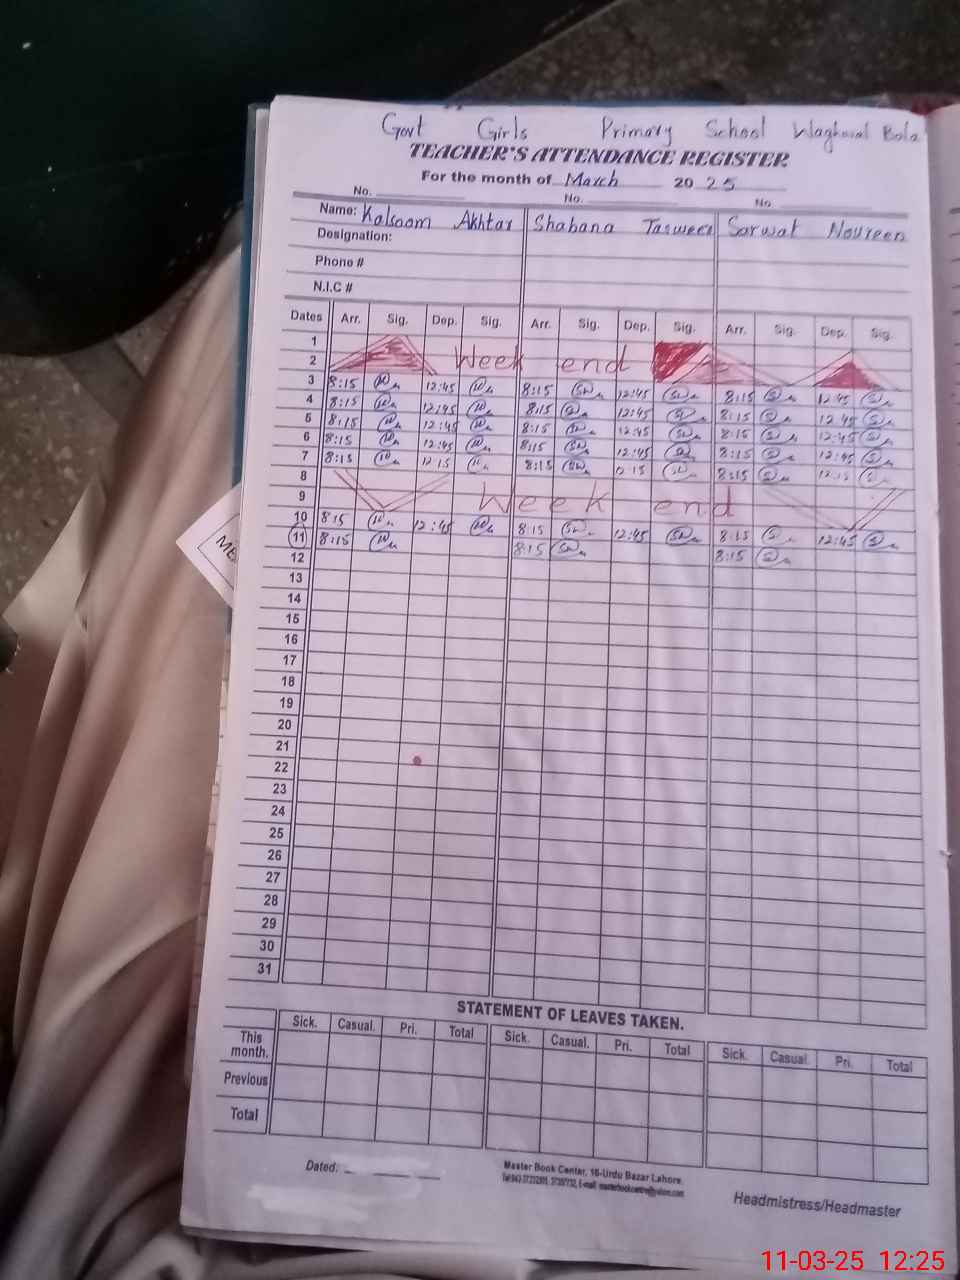 Govt Girls Primary School Waghowal Bala
TEACHER'S ATTENDANCE REGISTER
For the month of March 2025
No. No. No
Name: Kalsoom Akhtar Shabana Tasweer Sarwat Noureen
Designation:
Phone #
N.I.C #
Dates Arr. Sig. Dep. Sig. Arr. Sig. Dep. Sig. Arr. Sig. Dep. Sig.
1
2 Week end
3 8:15 12:45 8:15 12:45 8:15 12:45
4 8:15 12:45 8:15 12:45 8:15 12:45
5 8:15 12:45 8:15 12:45 8:15 12:45
6 8:15 12:45 8:15 12:45 8:15 12:45
7 8:15 12 15 8:15 12 15 8:15 12:15
8
9 Week end
10 8:15 12:45 8:15 12:45 8:15 12:45
11 8:15 8:15 8:15
12
13
14
15
16
17
18
19
20
21
22
23
24
25
26
27
28
29
30
31
STATEMENT OF LEAVES TAKEN.
Sick. Casual. Pri. Total Sick. Casual. Pri. Total Sick. Casual. Pri. Total
This month.
Previous
Total
Dated:
Master Book Center, 16-Urdu Bazar Lahore.
Headmistress/Headmaster
11-03-25 12:25